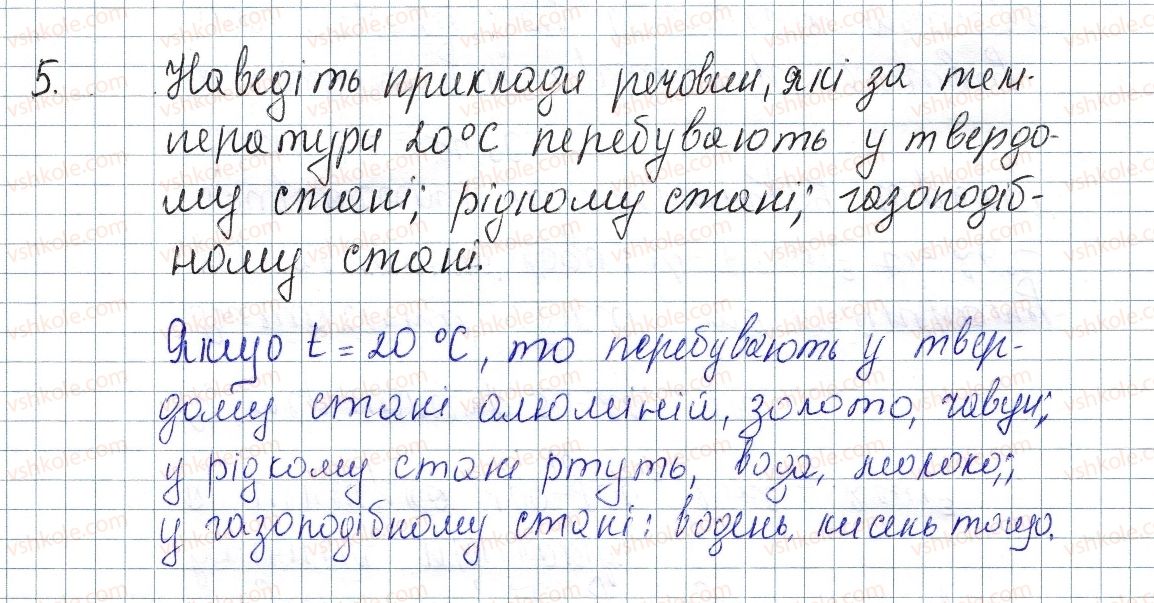 5. Наведіть приклади речовин, які за тем-
ператури 20°C перебувають у твердо-
му стані; рідкому стані; газоподіб-
ному стані.
Якщо t = 20 °C, то перебувають у твер-
дому стані алюміній, золото, чавун;
у рідкому стані ртуть, вода, молоко;
у газоподібному стані: водень, кисень тощо.